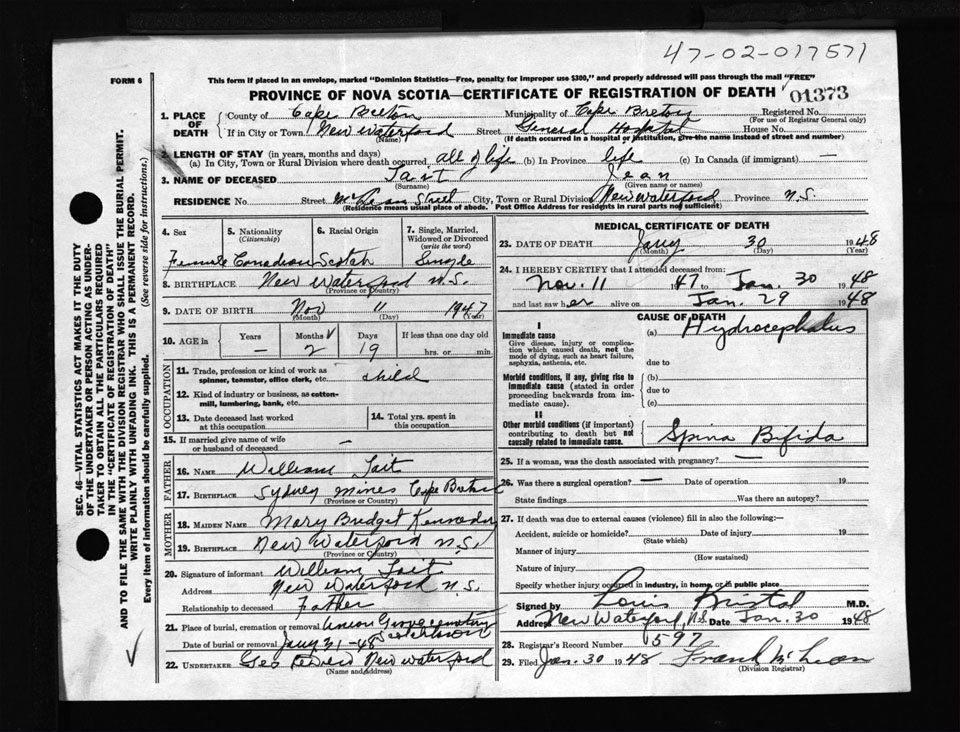 47-02-017571
FORM 6
This form if placed in an envelope, marked "Dominion Statistics—Free, penalty for improper use $300," and properly addressed will pass through the mail "FREE"
PROVINCE OF NOVA SCOTIA—CERTIFICATE OF REGISTRATION OF DEATH 01373
1. PLACE OF DEATH
County of Cape Breton Municipality of Cape Breton Registered No.
(For use of Registrar General only)
If in City or Town New Waterford Street General Hospital House No.
(Name) (If death occurred in a hospital or institution, give the name instead of street and number)
2. LENGTH OF STAY (in years, months and days)
(a) In City, Town or Rural Division where death occurred all of life (b) In Province life (c) In Canada (if immigrant) —
3. NAME OF DECEASED Tait Jean
(Surname) (Given name or names)
RESIDENCE No. Street McLean Street City, Town or Rural Division New Waterford Province N.S.
(Residence means usual place of abode. Post Office Address for residents in rural parts not sufficient)
4. Sex Female
5. Nationality (Citizenship) Canadian
6. Racial Origin Scotch
7. Single, Married, Widowed or Divorced (write the word) Single
8. BIRTHPLACE New Waterford N.S.
(Province or Country)
9. DATE OF BIRTH Nov 11 1947
(Month) (Day) (Year)
10. AGE in Years Months Days If less than one day old
— 2 19 hrs. or min.
OCCUPATION
11. Trade, profession or kind of work as spinner, teamster, office clerk, etc. child
12. Kind of industry or business, as cotton-mill, lumbering, bank, etc.
13. Date deceased last worked at this occupation
14. Total yrs. spent in this occupation
15. If married give name of wife or husband of deceased —
FATHER
16. NAME William Tait
17. BIRTHPLACE Sydney Mines Cape Breton
(Province or Country)
MOTHER
18. MAIDEN NAME Mary Bridget Kennedy
19. BIRTHPLACE New Waterford N.S.
(Province or Country)
20. Signature of informant William Tait
Address New Waterford N.S.
Relationship to deceased Father
21. Place of burial, cremation or removal Union Grove cemetery Scotchtown
Date of burial or removal Jany 31-48
22. UNDERTAKER Geo New Waterford
(Name and address)
MEDICAL CERTIFICATE OF DEATH
23. DATE OF DEATH Jany 30 1948
(Month) (Day) (Year)
24. I HEREBY CERTIFY that I attended deceased from:
Nov. 11 1947 to Jan. 30 1948
and last saw her alive on Jan. 29 1948
CAUSE OF DEATH
I
Immediate cause (a) Hydrocephalus
Give disease, injury or complication which caused death, not the mode of dying, such as heart failure, asphyxia, asthenia, etc. due to
Morbid conditions, if any, giving rise to immediate cause (stated in order proceeding backwards from immediate cause). (b)
due to
(c)
II
Other morbid conditions (if important) contributing to death but not causally related to immediate cause. Spina Bifida
25. If a woman, was the death associated with pregnancy? —
26. Was there a surgical operation? — Date of operation 19
State findings Was there an autopsy?
27. If death was due to external causes (violence) fill in also the following:—
Accident, suicide or homicide? Date of injury 19
(State which)
Manner of injury
(How sustained)
Nature of injury
Specify whether injury occurred in industry, in home, or in public place
Signed by Louis Kristal M.D.
Address New Waterford, N.S. Date Jan. 30 1948
28. Registrar's Record Number 597
29. Filed Jan. 30 1948 Frank McLean
(Division Registrar)
SEC. 46—VITAL STATISTICS ACT MAKES IT THE DUTY
OF THE UNDERTAKER OR PERSON ACTING AS UNDER-
TAKER TO OBTAIN ALL THE PARTICULARS REQUIRED
IN THE "CERTIFICATE OF REGISTRATION OF DEATH"
AND TO FILE THE SAME WITH THE DIVISION REGISTRAR WHO SHALL ISSUE THE BURIAL PERMIT.
WRITE PLAINLY WITH UNFADING INK. THIS IS A PERMANENT RECORD.
Every item of information should be carefully supplied. (See reverse side for instructions.)